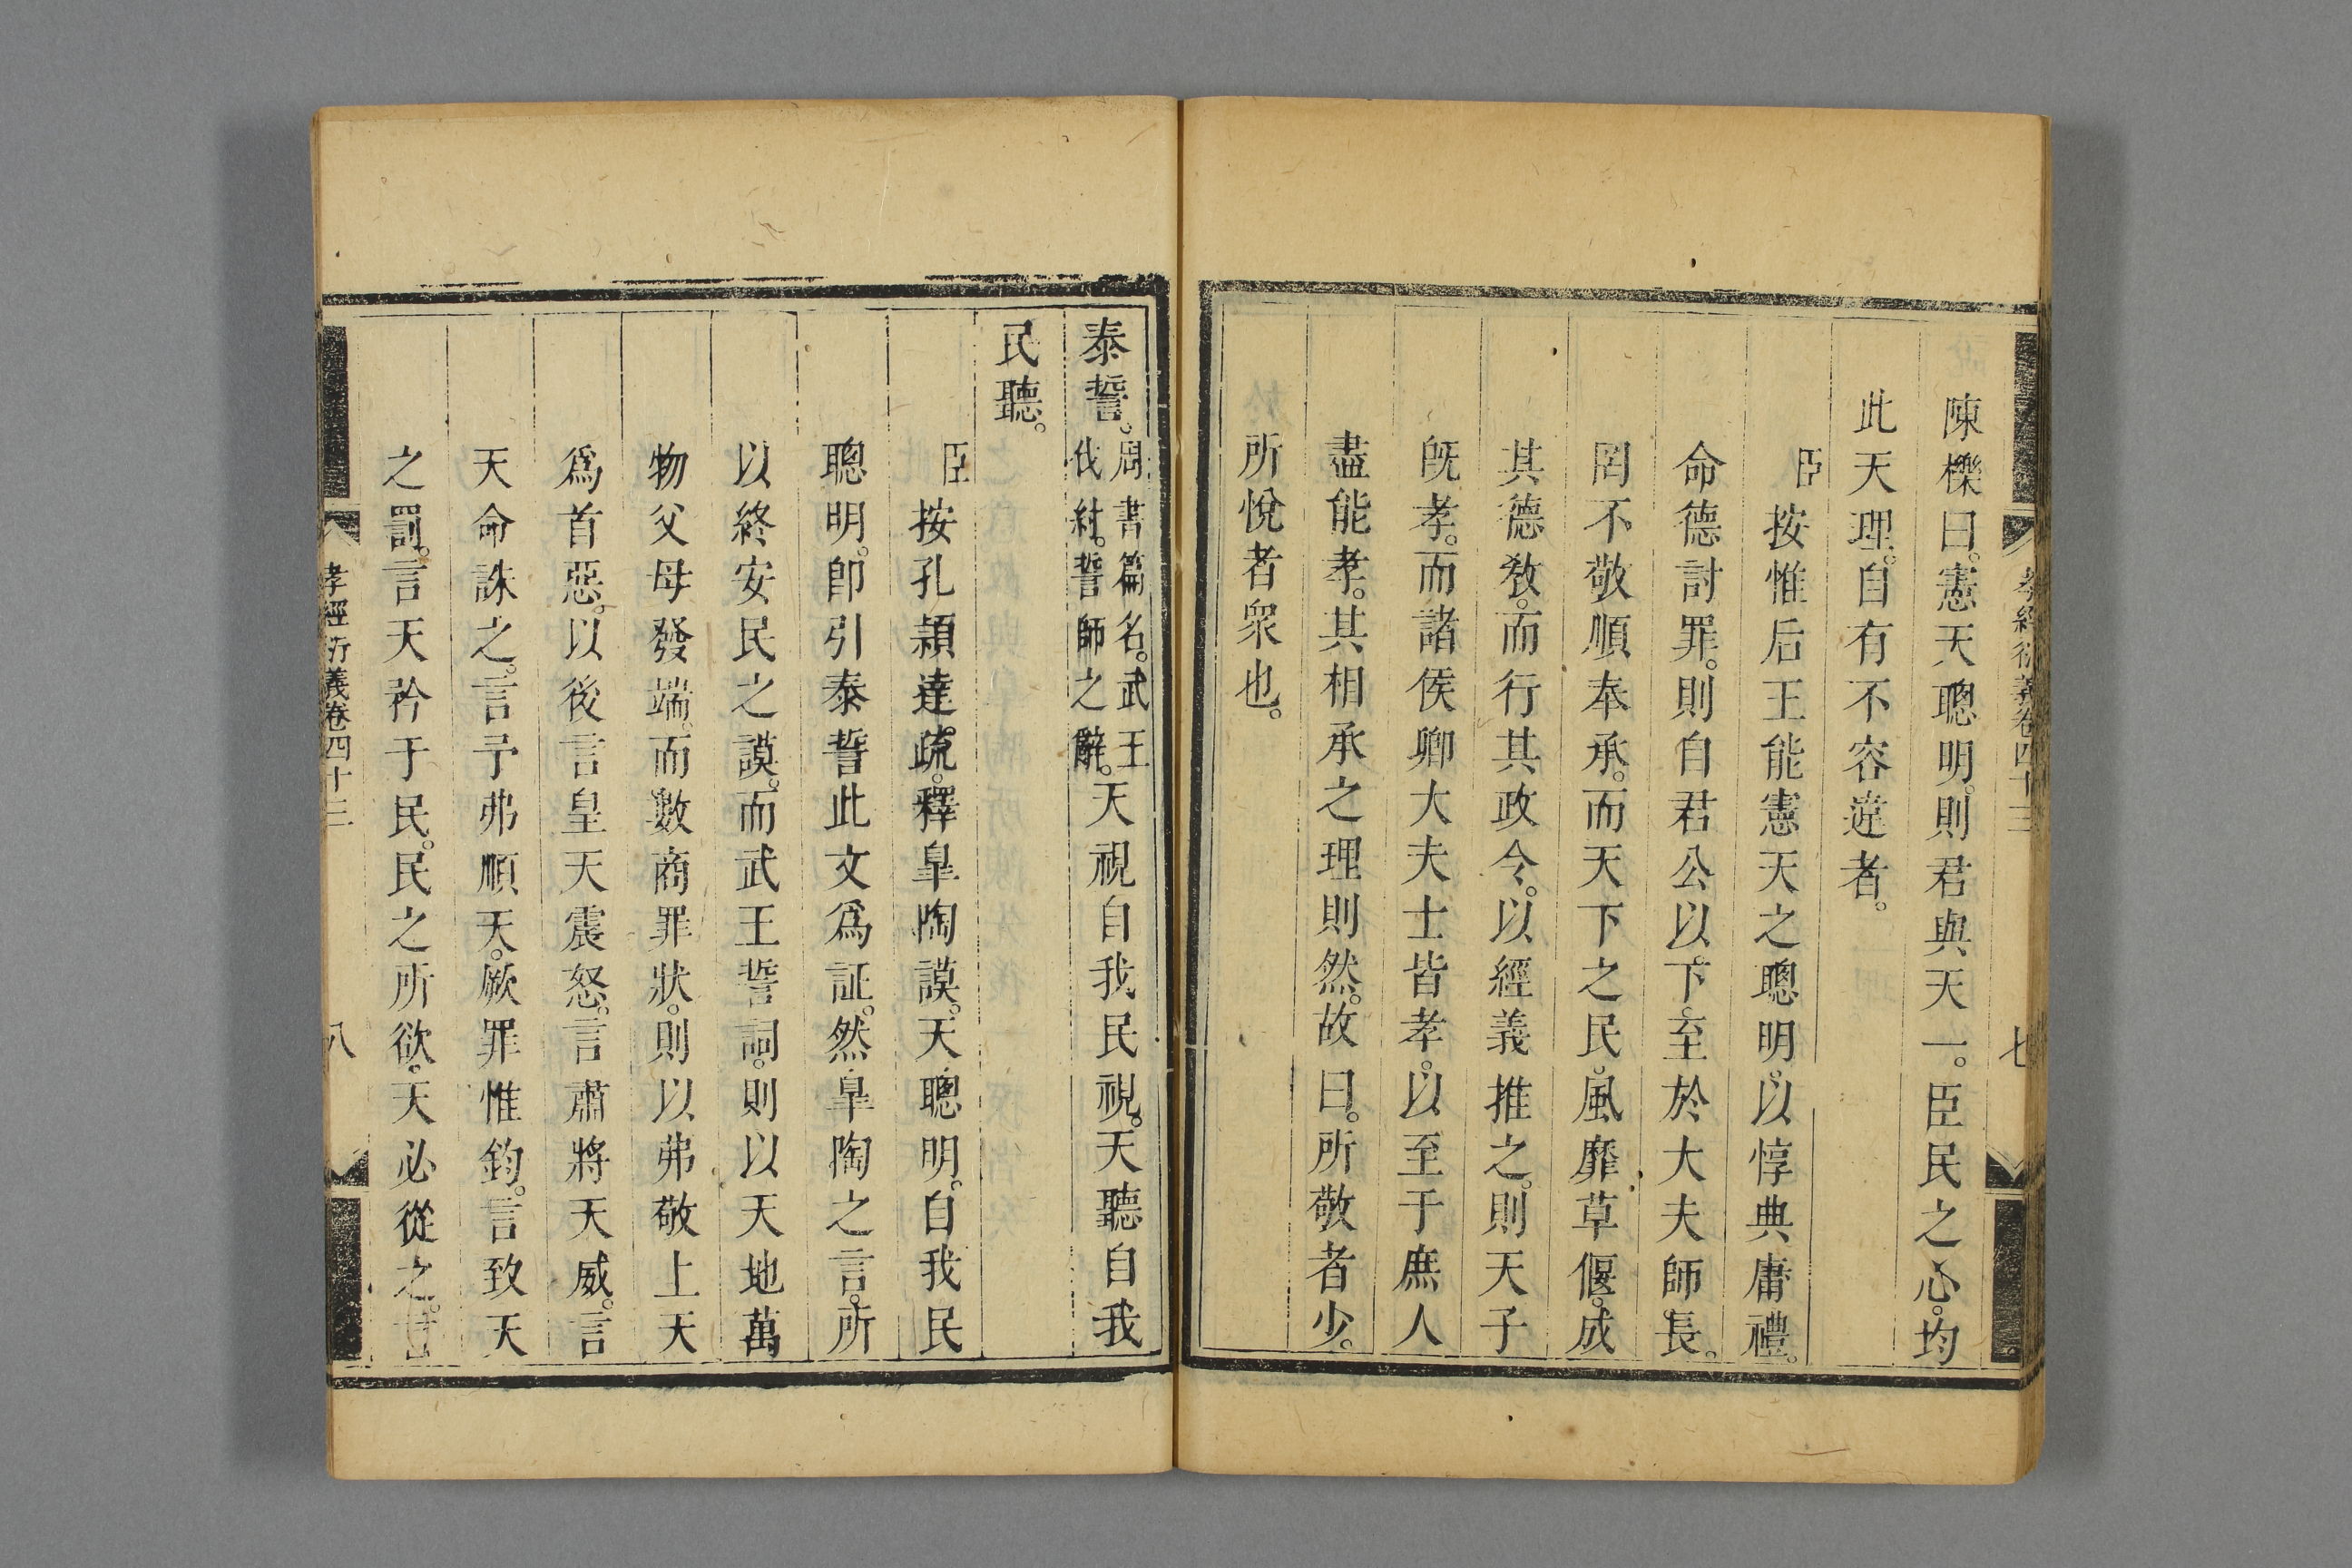 孝經衍義卷四十三
七
陳櫟曰。憲天聰明。則君與天一。臣民之心。均
此天理。自有不容違者。
臣按惟后王能憲天之聰明。以惇典庸禮。
命德討罪。則自君公以下。至於大夫師長。
罔不敬順奉承。而天下之民。風靡草偃。成
其德敎。而行其政令。以經義推之。則天子
旣孝。而諸侯卿大夫士皆孝。以至于庶人
盡能孝。其相承之理則然。故曰。所敬者少。
所悅者衆也。
泰誓。周書篇名。武王伐紂。誓師之辭。天視自我民視。天聽自我
民聽。
臣按孔頴達疏。釋皐陶謨。天聰明。自我民
聰明。卽引泰誓此文爲証。然皐陶之言。所
以終安民之謨。而武王誓詞。則以天地萬
物父母發端。而數商罪狀。則以弗敬上天
爲首惡。以後言皇天震怒。言肅將天威。言
天命誅之。言予弗順天。厥罪惟鈞。言致天
之罰。言天矜于民。民之所欲。天必從之。
孝經衍義卷四十三
八